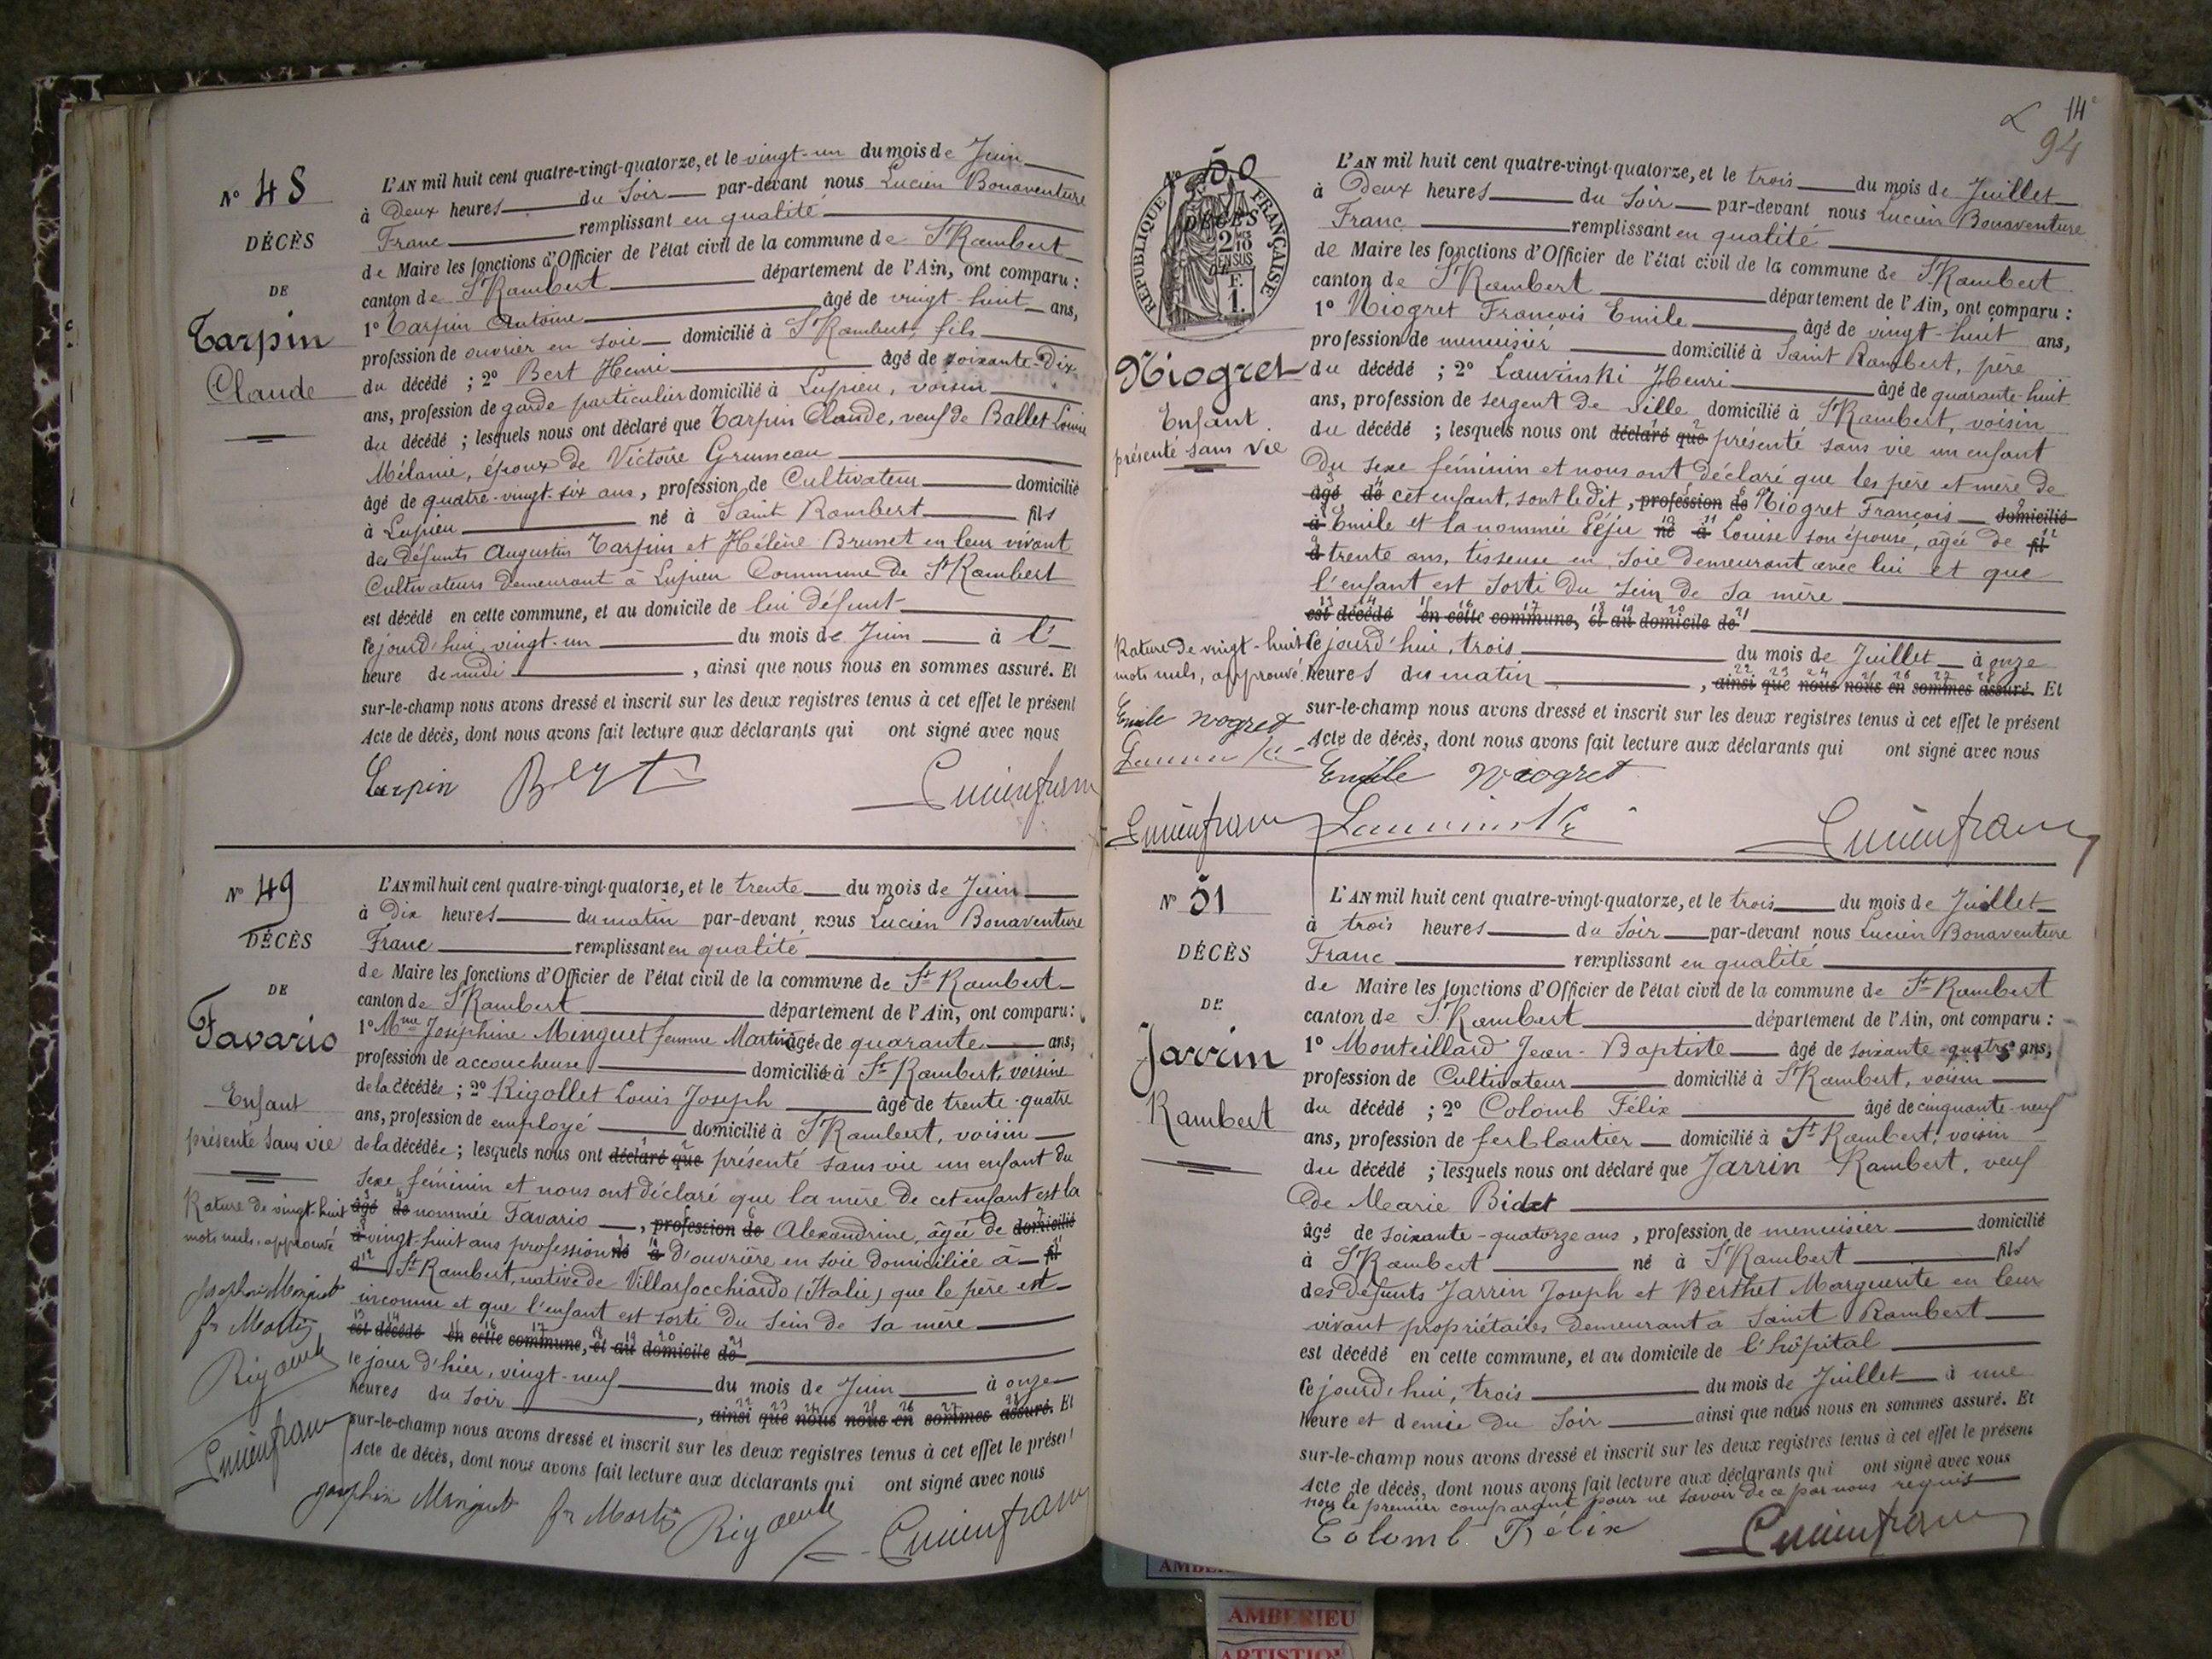 N° 48
DÉCÈS
DE
Tarpin
Claude
L'AN mil huit cent quatre-vingt-quatorze, et le vingt-un du mois de Juin
à Deux heures du Soir par-devant nous Lucien Bonaventure
Franc remplissant en qualité
de Maire les fonctions d'Officier de l'état civil de la commune de St Rambert
canton de St Rambert département de l'Ain, ont comparu :
1° Tarpin Antoine âgé de vingt-huit ans,
profession de ouvrier en soie domicilié à St Rambert, fils
du décédé ; 2° Bert Henri âgé de soixante-dix
ans, profession de garde particulier domicilié à Lupieu, voisin
du décédé ; lesquels nous ont déclaré que Tarpin Claude, veuf de Ballet Louise
Mélanie, époux de Victoire Grumeau
âgé de quatre-vingt-six ans, profession de Cultivateur domicilié
à Lupieu né à Saint Rambert fils
des défunts Augustin Tarpin et Hélène Brunet en leur vivant
Cultivateurs demeurant à Lupieu Commune de St Rambert
est décédé en cette commune, et au domicile de lui défunt
Cejourd'hui, vingt-un du mois de Juin à l'
heure de midi , ainsi que nous nous en sommes assuré. Et
sur-le-champ nous avons dressé et inscrit sur les deux registres tenus à cet effet le présent
Acte de décès, dont nous avons fait lecture aux déclarants qui ont signé avec nous
Tarpin Bert Lucien franc
N° 49
DÉCÈS
DE
Favario
Enfant
présenté sans vie
Rature de vingt-huit
mots nuls, approuvé
Josephine Minguet
fe Martin
Rigollet
Lucien franc
L'AN mil huit cent quatre-vingt-quatorze, et le trente du mois de Juin
à Dix heures du matin par-devant nous Lucien Bonaventure
Franc remplissant en qualité
de Maire les fonctions d'Officier de l'état civil de la commune de St Rambert
canton de St Rambert département de l'Ain, ont comparu :
1° Mme Joséphine Minguet femme Martin âgée de quarante ans,
profession de accoucheuse domiciliée à St Rambert, voisine
de la décédée ; 2° Rigollet Louis Joseph âgé de trente-quatre
ans, profession de employé domicilié à St Rambert, voisin
de la décédée ; lesquels nous ont déclaré que présenté sans vie un enfant du
sexe féminin et nous ont déclaré que la mère de cet enfant est la
âgé de nommée Favario , profession de Alexandrine, âgée de domicilié
à vingt-huit ans profession né à d'ouvrière en soie domiciliée à fil
d St Rambert, native de Villarfocchiardo (Italie) que le père est
inconnu et que l'enfant est sorti du sein de sa mère
est décédé en cette commune, et au domicile de
le jour d'hier, vingt-neuf du mois de Juin à onze
heures du soir , ainsi que nous nous en sommes assuré. Et
sur-le-champ nous avons dressé et inscrit sur les deux registres tenus à cet effet le présent
Acte de décès, dont nous avons fait lecture aux déclarants qui ont signé avec nous
Josephine Minguet fe Martin Rigollet Lucien franc
14e
94
N° 50
DÉCÈS
RÉPUBLIQUE FRANÇAISE
2 Mes 10
EN SUS
1 F.
Niogret
Enfant
présenté sans vie
Rature de vingt-huit
mots nuls, approuvé
Emile Niogret
Lucien franc
L'AN mil huit cent quatre-vingt-quatorze, et le trois du mois de Juillet
à Deux heures du Soir par-devant nous Lucien Bonaventure
Franc remplissant en qualité
de Maire les fonctions d'Officier de l'état civil de la commune de St Rambert
canton de St Rambert département de l'Ain, ont comparu :
1° Niogret François Emile âgé de vingt-huit ans,
profession de menuisier domicilié à Saint Rambert, père
du décédé ; 2° Lauvinski Henri âgé de quarante-huit
ans, profession de sergent de ville domicilié à St Rambert, voisin
du décédé ; lesquels nous ont déclaré que présenté sans vie un enfant
du sexe féminin et nous ont déclaré que les père et mère de
âgé de cet enfant, sont le dit , profession de Niogret François domicilié
à Emile et la nommée Péju né à Louise son épouse, âgée de fil
d trente ans, tisseuse en soie demeurant avec lui et que
l'enfant est sorti du sein de sa mère
est décédé en cette commune, et au domicile de
Cejourd'hui, trois du mois de Juillet à onze
heures du matin , ainsi que nous nous en sommes assuré. Et
sur-le-champ nous avons dressé et inscrit sur les deux registres tenus à cet effet le présent
Acte de décès, dont nous avons fait lecture aux déclarants qui ont signé avec nous
Emile Niogret
Lauvinski Lucien franc
N° 51
DÉCÈS
DE
Jarrin
Rambert
L'AN mil huit cent quatre-vingt-quatorze, et le trois du mois de Juillet
à trois heures du Soir par-devant nous Lucien Bonaventure
Franc remplissant en qualité
de Maire les fonctions d'Officier de l'état civil de la commune de St Rambert
canton de St Rambert département de l'Ain, ont comparu :
1° Monteillard Jean-Baptiste âgé de soixante-quatre ans,
profession de Cultivateur domicilié à St Rambert, voisin
du décédé ; 2° Colomb Félix âgé de cinquante-neuf
ans, profession de ferblantier domicilié à St Rambert, voisin
du décédé ; lesquels nous ont déclaré que Jarrin Rambert, veuf
de Marie Bidet
âgé de soixante-quatorze ans , profession de menuisier domicilié
à St Rambert né à St Rambert fils
des défunts Jarrin Joseph et Berthet Marguerite en leur
vivant propriétaires demeurant à Saint Rambert
est décédé en cette commune, et au domicile de l'hôpital
Cejourd'hui, trois du mois de Juillet à une
heure et demie du Soir ainsi que nous nous en sommes assuré. Et
sur-le-champ nous avons dressé et inscrit sur les deux registres tenus à cet effet le présent
Acte de décès, dont nous avons fait lecture aux déclarants qui ont signé avec nous
non le premier comparant pour ne savoir de ce par nous requis
Colomb Félix Lucien franc
AMBERIEU